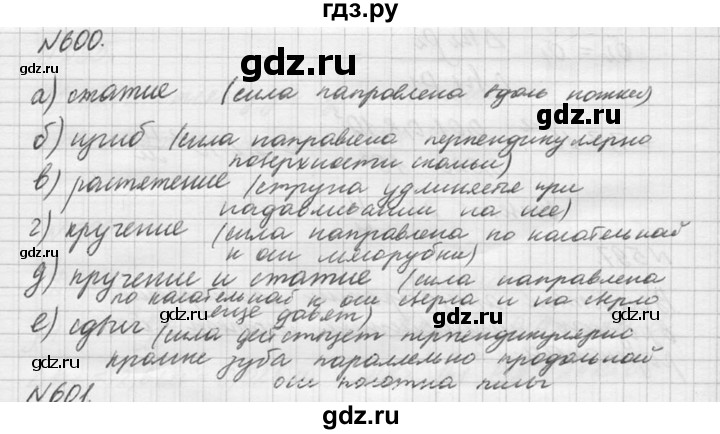 гдз.ру
№600.
gdz.ru gdz.ru
а) сжатие (сила направлена вдоль ножки)
б) изгиб (сила направлена перпендикулярно
поверхности скамьи)
gdz.ru gdz.ru
в) растяжение (струна удлиняется при
надавливании на нее)
г) кручение (сила направлена по касательной
к оси мясорубки)
gdz.ru gdz.ru
д) кручение и сжатие (сила направлена
по касательной к оси сверла и на сверло
еще давят)
gdz.ru gdz.ru
е) сдвиг (сила действует перпендикулярно
кромке зуба параллельно продольной
оси полотна пилы
№601.
gdz.ru gdz.ru
gdz.ru